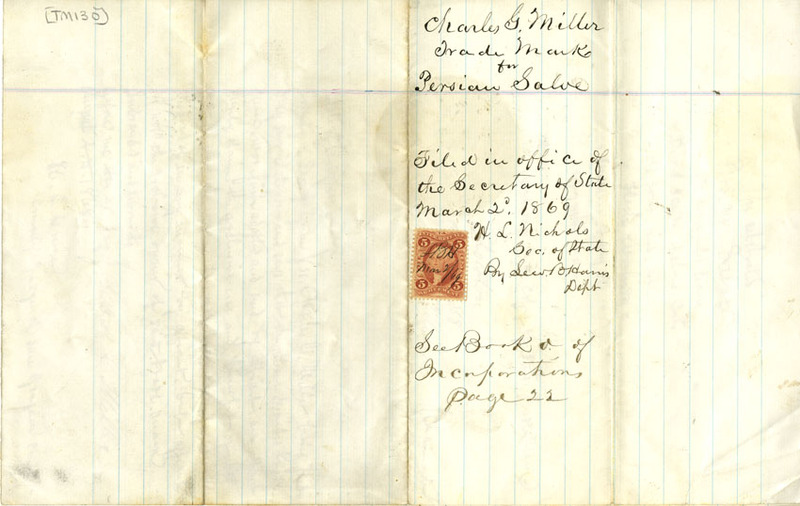 [TM130]
Charles G. Miller
Trade Mark
for
Persian Salve
Filed in office of
the Secretary of State
March 2d, 1869
H. L. Nichols
Sec. of State
By Lew B Harris
Dept
5 5
LBH
Mar 2/69
5 5
See Book of
Incorporations
Page 22